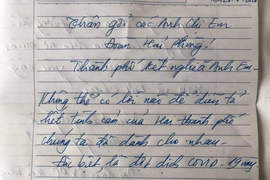 Thân gửi các Anh Chị Em
Đoàn Hải Phòng!
Thành phố kết nghĩa Anh Em -
Không thể có lời nào để diễn tả
hết tình cảm của Hai thành phố
chúng ta đã dành cho nhau -
Đặc biệt là đợt dịch COVID - 19 này